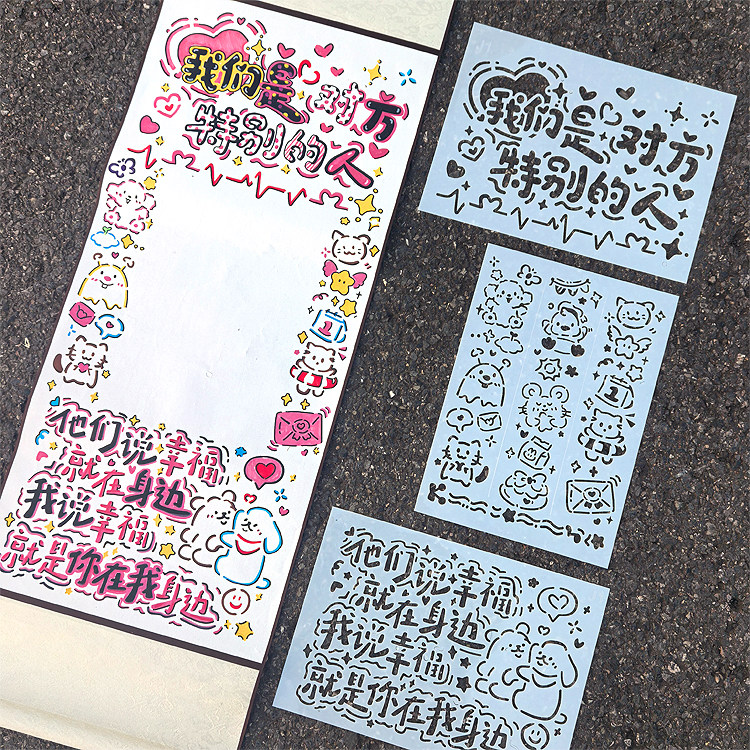 我们是对方
特别的人
他们说幸福
就在身边
我说幸福
就是你在我身边
我们是对方
特别的人
1
他们说幸福
就在身边
我说幸福
就是你在我身边